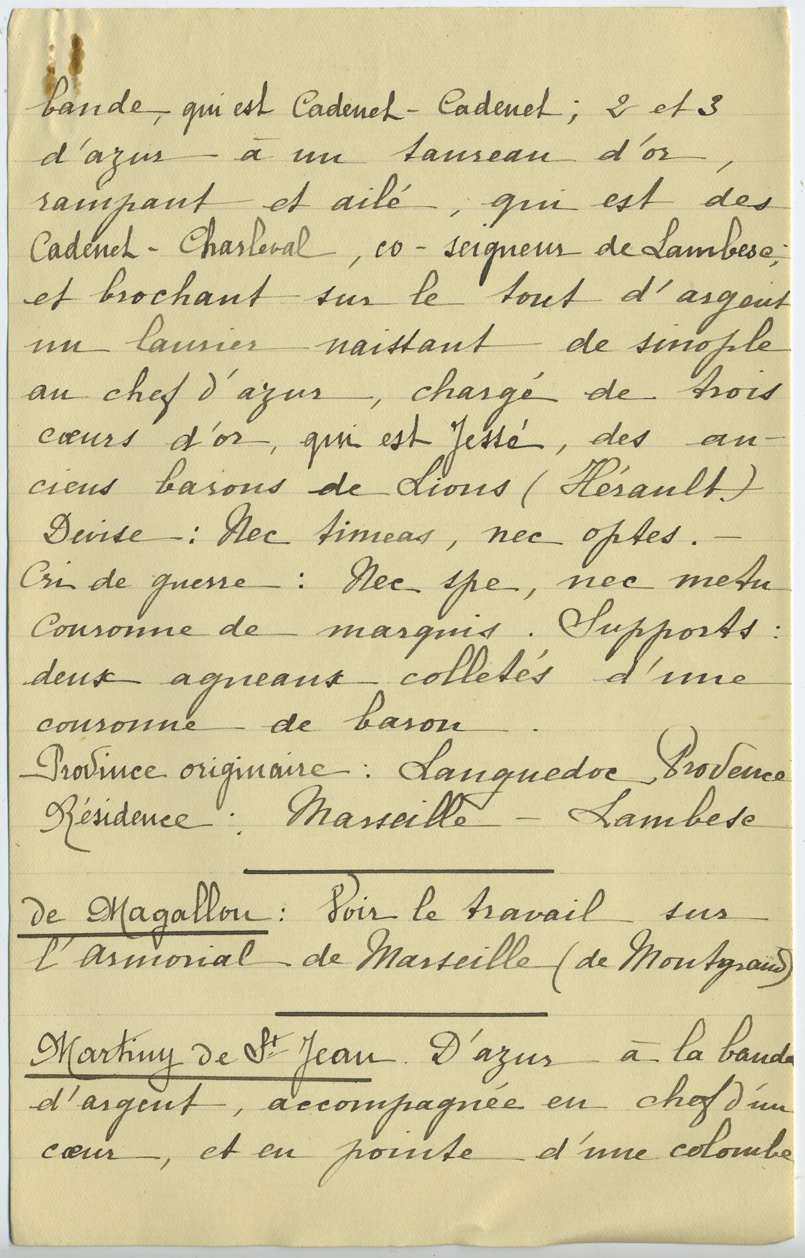 bande, qui est Cadenet-Cadenet ; 2 et 3
d'azur à un taureau d'or,
rampant et ailé, qui est des
Cadenet-Charleval, co-seigneur de Lambesc ;
et brochant sur le tout d'argent
un laurier naissant de sinople
au chef d'azur, chargé de trois
cœurs d'or, qui est Jessé, des an-
ciens barons de Lions (Hérault.)
Devise : Nec timeas, nec optes. -
Cri de guerre : Nec spe, nec metu
Couronne de marquis. Supports :
deux agneaux colletés d'une
couronne de baron.
Province originaire : Languedoc, Provence
Résidence : Marseille - Lambesc
de Magallon : Voir le travail sur
l'armorial de Marseille (de Montgrand)
Martiny de St Jean. D'azur à la bande
d'argent, accompagnée en chef d'un
cœur, et en pointe d'une colombe